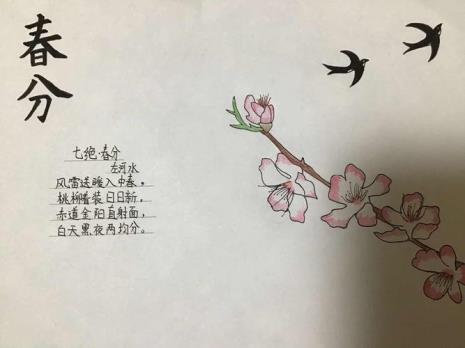 春分
七绝·春分
左河水
风雷送暖入中春，
桃柳着装日日新，
赤道金阳直射面，
白天黑夜两均分。